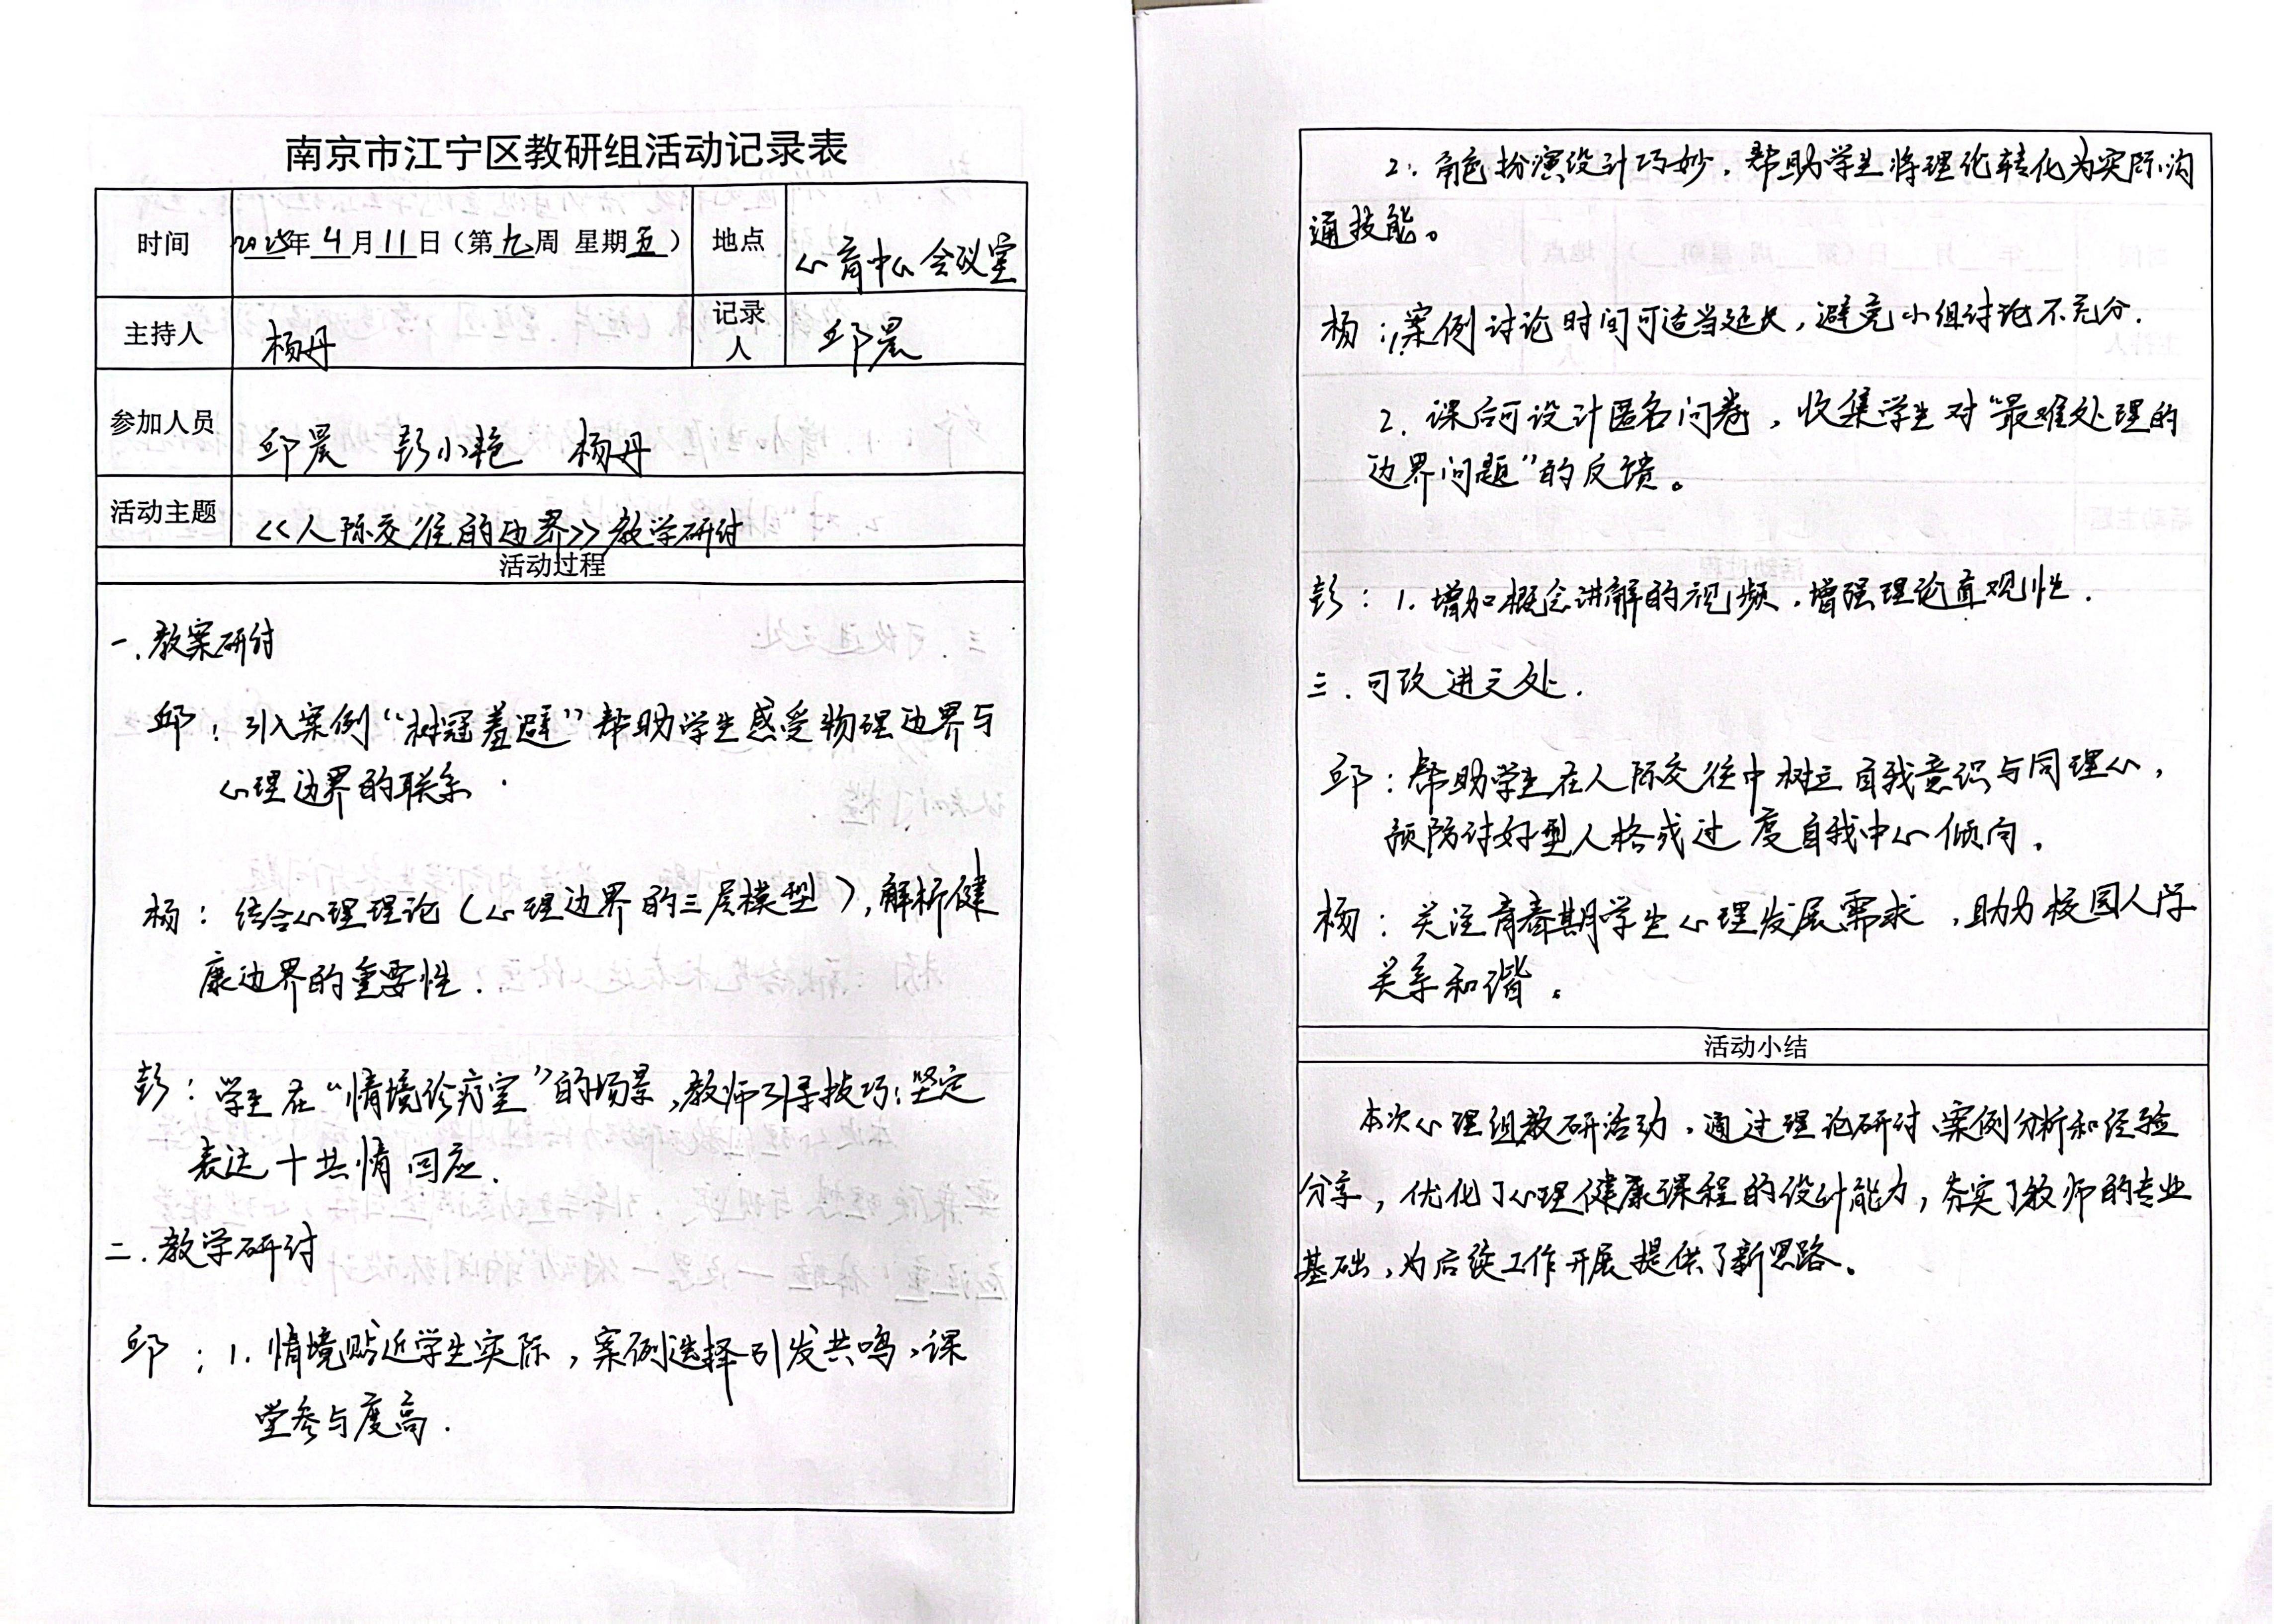 南京市江宁区教研组活动记录表
时间 2025年 4 月 11 日（第 九 周 星期 五） 地点 心育中心会议室
主持人 杨丹 记录人 邱晨
参加人员 邱晨 彭小艳 杨丹
活动主题 《人际交往的边界》教学研讨
活动过程
一.教案研讨
邱：引入案例“树冠羞避”帮助学生感受物理边界与
心理边界的联系.
杨：结合心理理论（心理边界的三层模型），解析健
康边界的重要性.
彭：学生在“情境诊疗室”的场景,教师引导技巧:坚定
表达十共情回应.
二.教学研讨
邱：1.情境贴近学生实际，案例选择引发共鸣,课
堂参与度高.
2.角色扮演设计巧妙.帮助学生将理论转化为实际沟
通技能。
杨：1.案例讨论时间可适当延长，避免小组讨论不充分.
2.课后可设计匿名问卷，收集学生对“最难处理的
边界问题”的反馈。
彭：1.增加概念讲解的视频.增强理论直观性.
三.可改进之处.
邱：帮助学生在人际交往中树立自我意识与同理心，
预防讨好型人格或过度自我中心倾向。
杨：关注青春期学生心理发展需求，助力校园人际
关系和谐。
活动小结
本次心理组教研活动，通过理论研讨、案例分析和经验
分享，优化了心理健康课程的设计能力，夯实了教师的专业
基础，为后续工作开展提供了新思路。